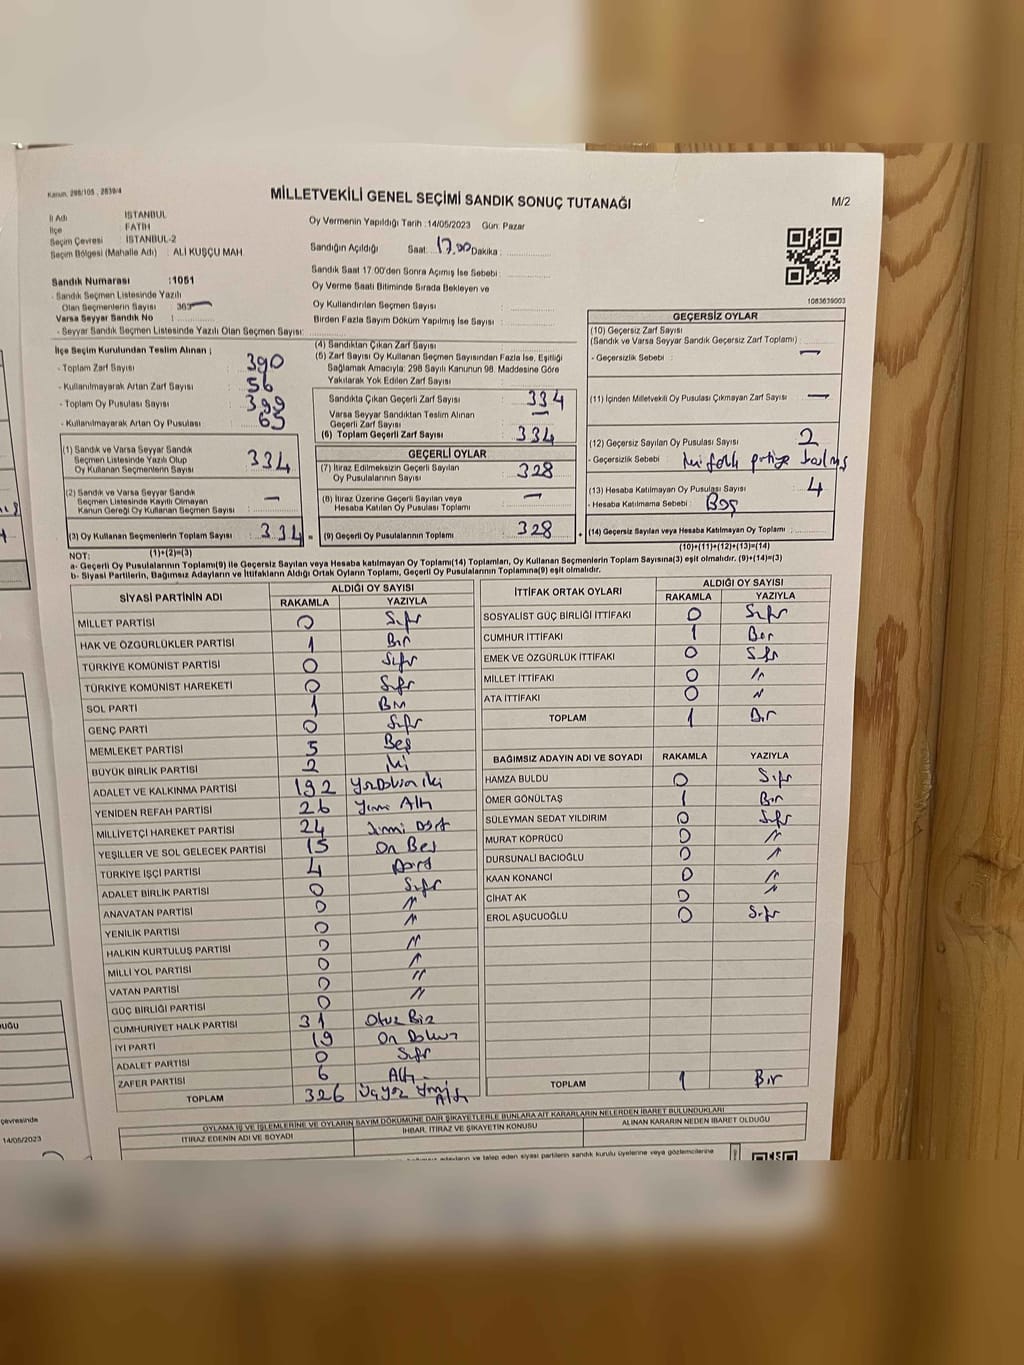 Kanun, 298/105 , 2839/4
MİLLETVEKİLİ GENEL SEÇİMİ SANDIK SONUÇ TUTANAĞI
M/2
İl Adı : İSTANBUL
İlçe : FATİH
Seçim Çevresi : İSTANBUL-2
Seçim Bölgesi (Mahalle Adı) : ALİ KUŞÇU MAH
Oy Vermenin Yapıldığı Tarih :14/05/2023 Gün: Pazar
Sandığın Açıldığı Saat: 17.00 Dakika :
Sandık Saat 17:00'den Sonra Açımış İse Sebebi :
Oy Verme Saati Bitiminde Sırada Bekleyen ve
Oy Kullandırılan Seçmen Sayısı
Birden Fazla Sayım Döküm Yapılmış İse Sayısı :
Sandık Numarası :1051
- Sandık Seçmen Listesinde Yazılı
Olan Seçmenlerin Sayısı :
Varsa Seyyar Sandık No :
- Seyyar Sandık Seçmen Listesinde Yazılı Olan Seçmen Sayısı:
1083639003
İlçe Seçim Kurulundan Teslim Alınan ;
- Toplam Zarf Sayısı : 390
- Kullanılmayarak Artan Zarf Sayısı : 56
- Toplam Oy Pusulası Sayısı : 399
- Kullanılmayarak Artan Oy Pusulası : 65
(1) Sandık ve Varsa Seyyar Sandık
Seçmen Listesinde Yazılı Olup
Oy Kullanan Seçmenlerin Sayısı : 334
(2) Sandık ve Varsa Seyyar Sandık
Seçmen Listesinde Kayıtlı Olmayan
Kanun Gereği Oy Kullanan Seçmen Sayısı : —
(3) Oy Kullanan Seçmenlerin Toplam Sayısı : 334 =
(1)+(2)=(3)
(4) Sandıktan Çıkan Zarf Sayısı :
(5) Zarf Sayısı Oy Kullanan Seçmen Sayısından Fazla İse, Eşitliği
Sağlamak Amacıyla: 298 Sayılı Kanunun 98. Maddesine Göre
Yakılarak Yok Edilen Zarf Sayısı :
Sandıkta Çıkan Geçerli Zarf Sayısı : 334
Varsa Seyyar Sandıktan Teslim Alınan
Geçerli Zarf Sayısı : —
(6) Toplam Geçerli Zarf Sayısı : 334
GEÇERLİ OYLAR
(7) İtiraz Edilmeksizin Geçerli Sayılan
Oy Pusulalarının Sayısı : 328
(8) İtiraz Üzerine Geçerli Sayılan veya
Hesaba Katılan Oy Pusulası Toplamı : —
(9) Geçerli Oy Pusulalarının Toplamı : 328 +
GEÇERSİZ OYLAR
(10) Geçersiz Zarf Sayısı
(Sandık ve Varsa Seyyar Sandık Geçersiz Zarf Toplamı) :
- Geçersizlik Sebebi : —
(11) İçinden Milletvekili Oy Pusulası Çıkmayan Zarf Sayısı : —
(12) Geçersiz Sayılan Oy Pusulası Sayısı : 2
- Geçersizlik Sebebi : iki farklı
(13) Hesaba Katılmayan Oy Pusulası Sayısı : 4
- Hesaba Katılmama Sebebi : Boş
(14) Geçersiz Sayılan veya Hesaba Katılmayan Oy Toplamı :
(10)+(11)+(12)+(13)=(14)
NOT:
a- Geçerli Oy Pusulalarının Toplamı(9) ile Geçersiz Sayılan veya Hesaba katılmayan Oy Toplamı(14) Toplamları, Oy Kullanan Seçmenlerin Toplam Sayısına(3) eşit olmalıdır. (9)+(14)=(3)
b- Siyasi Partilerin, Bağımsız Adayların ve İttifakların Aldığı Ortak Oyların Toplamı, Geçerli Oy Pusulalarının Toplamına(9) eşit olmalıdır.
SİYASİ PARTİNİN ADI ALDIĞI OY SAYISI
RAKAMLA YAZIYLA
MİLLET PARTİSİ 0 Sıfır
HAK VE ÖZGÜRLÜKLER PARTİSİ 1 Bir
TÜRKİYE KOMÜNİST PARTİSİ 0 Sıfır
TÜRKİYE KOMÜNİST HAREKETİ 0 Sıfır
SOL PARTİ 1 Bir
GENÇ PARTİ 0 Sıfır
MEMLEKET PARTİSİ 5 Beş
BÜYÜK BİRLİK PARTİSİ 2 iki
ADALET VE KALKINMA PARTİSİ 192 Yüzdoksan iki
YENİDEN REFAH PARTİSİ 26 Yirmi Altı
MİLLİYETÇİ HAREKET PARTİSİ 24 Yirmi Dört
YEŞİLLER VE SOL GELECEK PARTİSİ 15 On Beş
TÜRKİYE İŞÇİ PARTİSİ 4 Dört
ADALET BİRLİK PARTİSİ 0 Sıfır
ANAVATAN PARTİSİ 0 "
YENİLİK PARTİSİ 0 "
HALKIN KURTULUŞ PARTİSİ 0 "
MİLLİ YOL PARTİSİ 0 "
VATAN PARTİSİ 0 "
GÜÇ BİRLİĞİ PARTİSİ 0 "
CUMHURİYET HALK PARTİSİ 31 Otuz Bir
İYİ PARTİ 19 On Dokuz
ADALET PARTİSİ 0 Sıfır
ZAFER PARTİSİ 6 Altı
TOPLAM 326 Üçyüz Yirmi Altı
İTTİFAK ORTAK OYLARI ALDIĞI OY SAYISI
RAKAMLA YAZIYLA
SOSYALİST GÜÇ BİRLİĞİ İTTİFAKI 0 Sıfır
CUMHUR İTTİFAKI 1 Bir
EMEK VE ÖZGÜRLÜK İTTİFAKI 0 Sıfır
MİLLET İTTİFAKI 0 "
ATA İTTİFAKI 0 "
TOPLAM 1 Bir
BAĞIMSIZ ADAYIN ADI VE SOYADI RAKAMLA YAZIYLA
HAMZA BULDU 0 Sıfır
ÖMER GÖNÜLTAŞ 1 Bir
SÜLEYMAN SEDAT YILDIRIM 0 Sıfır
MURAT KÖPRÜCÜ 0 "
DURSUNALİ BACIOĞLU 0 "
KAAN KONANCI 0 "
CİHAT AK 0 "
EROL AŞUCUOĞLU 0 Sıfır
TOPLAM 1 Bir
OYLAMA İŞ VE İŞLEMLERİNE VE OYLARIN SAYIM DÖKÜMÜNE DAİR ŞİKAYETLERLE BUNLARA AİT KARARLARIN NELERDEN İBARET BULUNDUKLARI
İTİRAZ EDENİN ADI VE SOYADI
İHBAR, İTİRAZ VE ŞİKAYETİN KONUSU
ALINAN KARARIN NEDEN İBARET OLDUĞU
adayların ve talep eden siyasi partilerin sandık kurulu üyelerine veya gözlemcilerine
çevresinde
14/05/2023